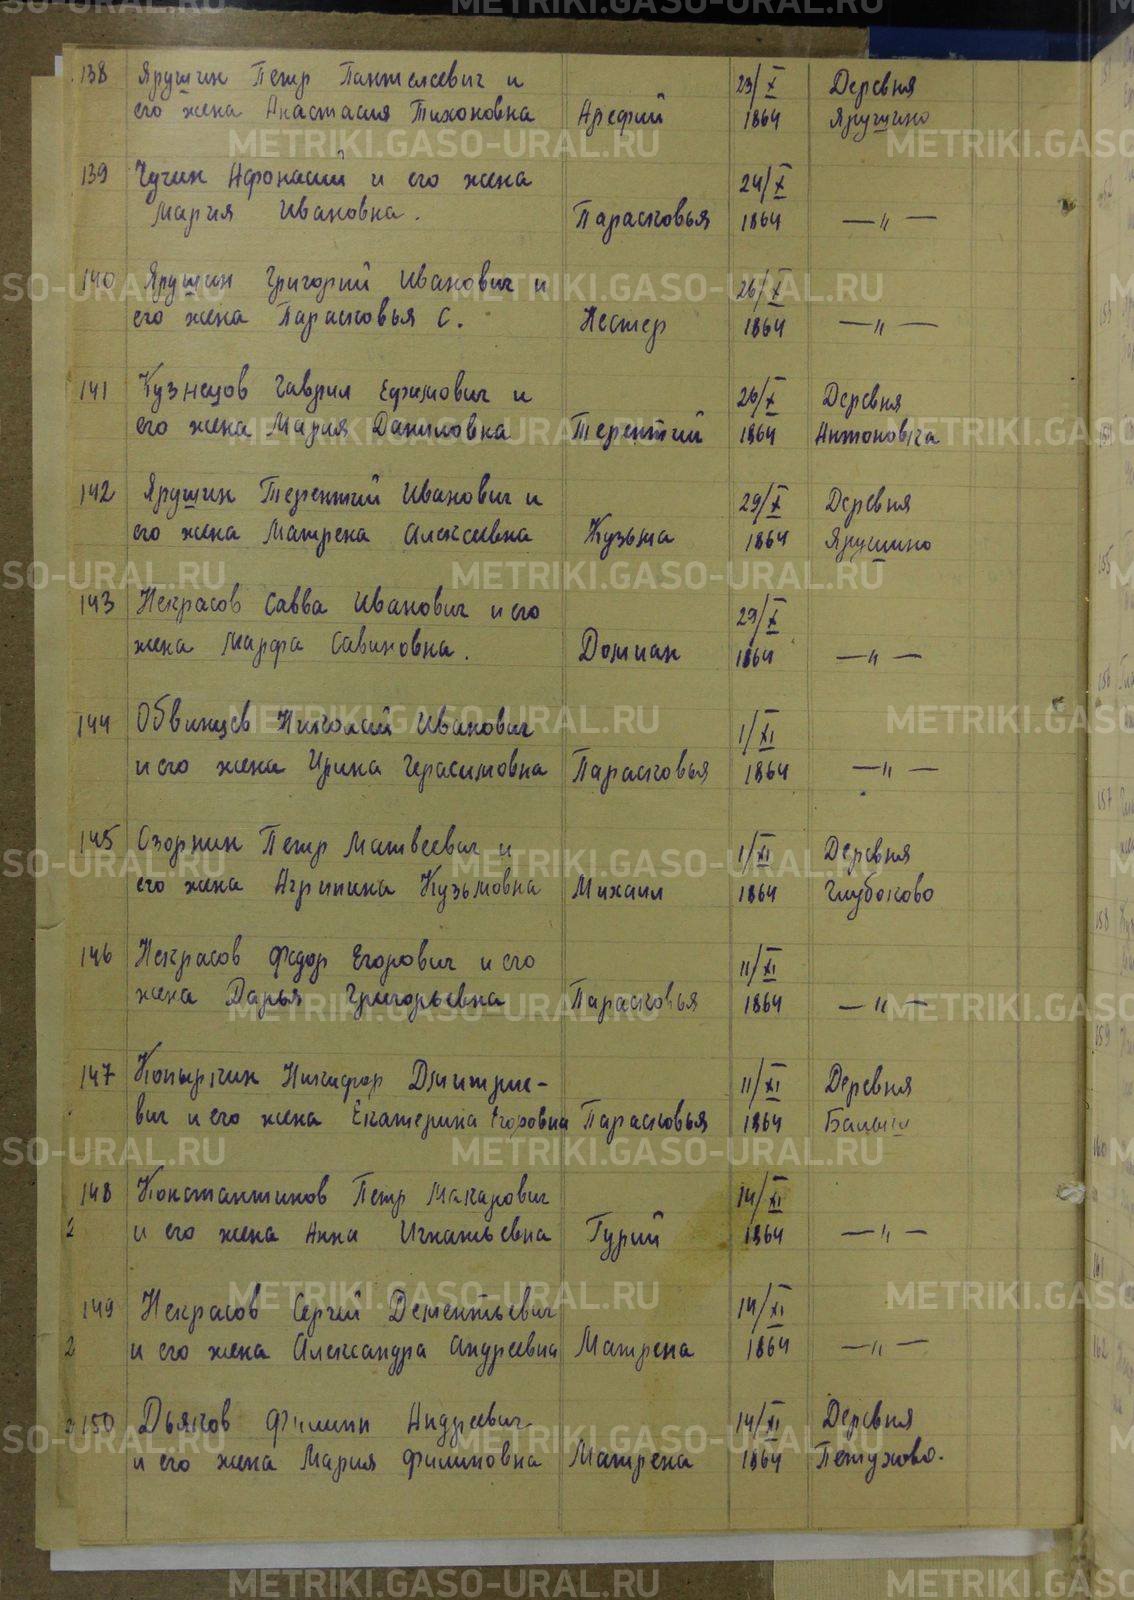 138 Ярушин Петр Пантелеевич и
его жена Анастасия Тихоновна Арефий 23/X 1864 Деревня Ярушино
139 Чучин Афонасий и его жена
Мария Ивановна. Парасковья 24/X 1864 —"—
140 Ярушин Григорий Иванович и
его жена Парасковья С. Нестер 26/X 1864 —"—
141 Кузнецов Гаврил Ефимович и
его жена Мария Даниловна Терентий 26/X 1864 Деревня Антоновка
142 Ярушин Терентий Иванович и
его жена Матрена Алексеевна Кузьма 29/X 1864 Деревня Ярушино
143 Некрасов Савва Иванович и его
жена Марфа Савиновна. Домиан 29/X 1864 —"—
144 Обвинцев Николай Иванович
и его жена Ирина Герасимовна Парасковья 1/XI 1864 —"—
145 Озорнин Петр Матвеевич и
его жена Агрипина Кузьмовна Михаил 1/XI 1864 Деревня Глубоково
146 Некрасов Федор Егорович и его
жена Дарья Григорьевна Парасковья 11/XI 1864 —"—
147 Копыркин Никифор Дмитрие-
вич и его жена Екатерина Егоровна Парасковья 11/XI 1864 Деревня
148 Константинов Петр Макарович
2 и его жена Анна Игнатьевна Гурий 14/XI 1864 —"—
149 Некрасов Сергей Дементьевич
2 и его жена Александра Андреевна Матрена 14/XI 1864 —"—
150 Дьяков Филипп Андреевич
и его жена Мария Филиповна Матрена 14/XI 1864 Деревня Петухово.
METRIKI.GASO-URAL.RU